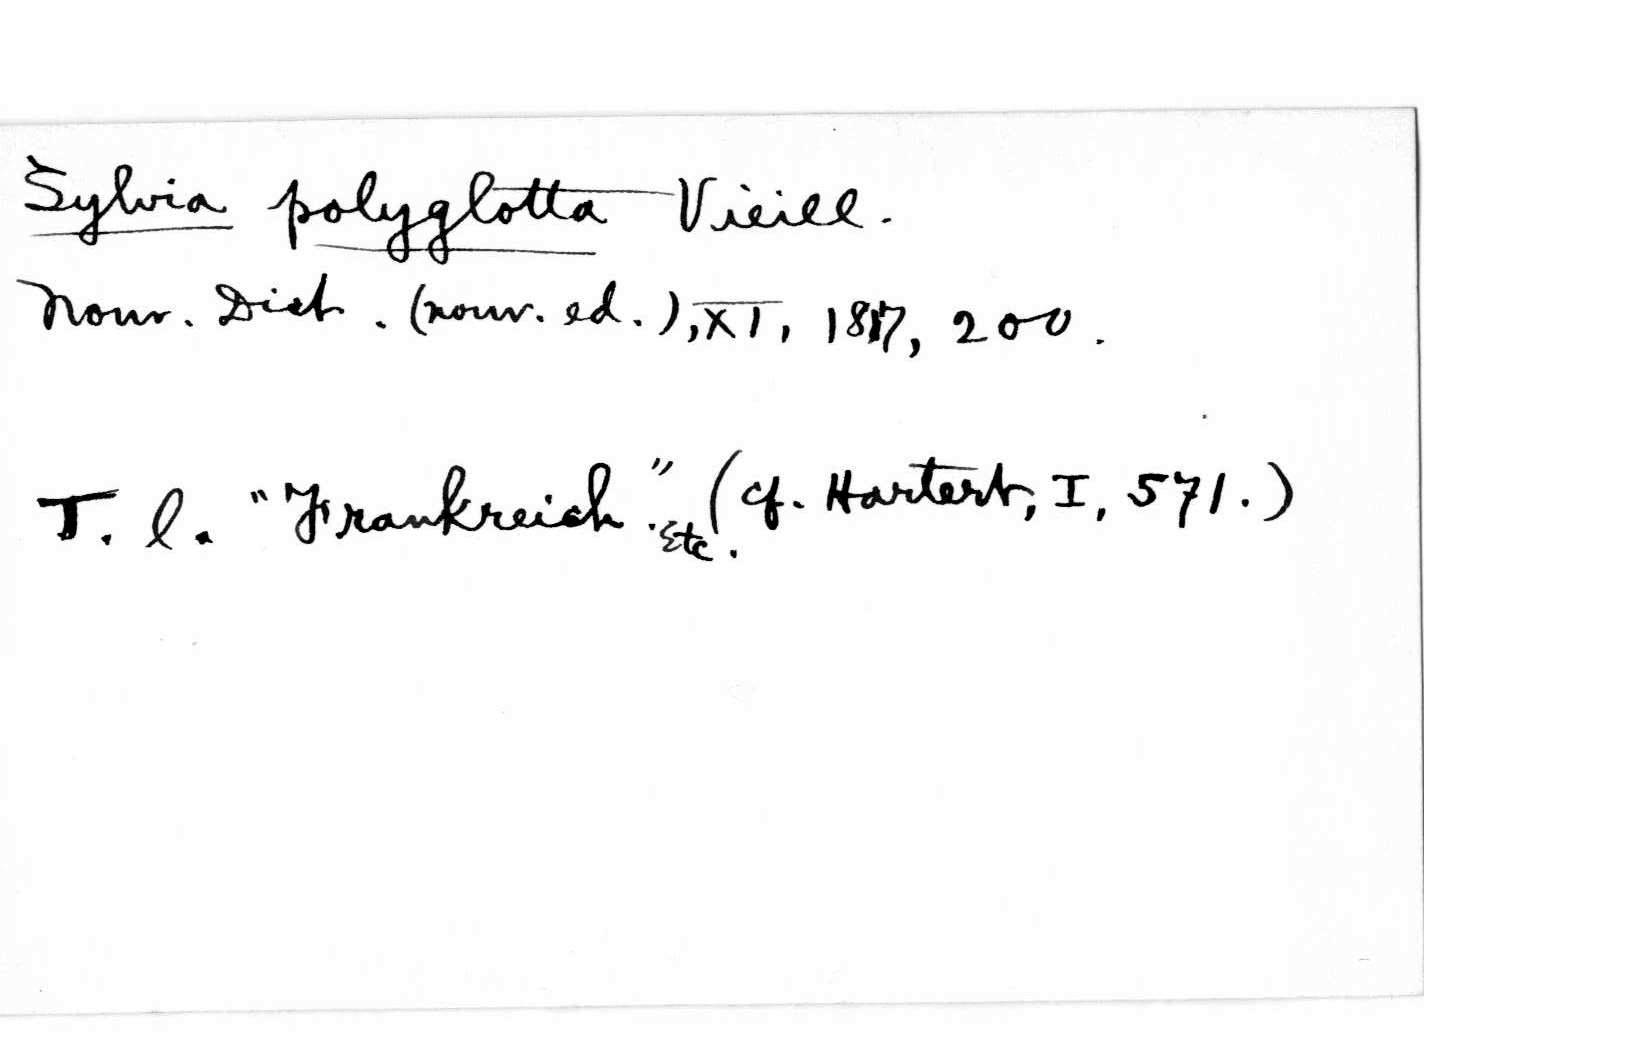 Sylvia polyglotta Vieill.
Nouv. Dict. (nouv. ed.), XI, 1817, 200.
T. l. "Frankreich". Etc. (cf. Hartert, I, 571.)